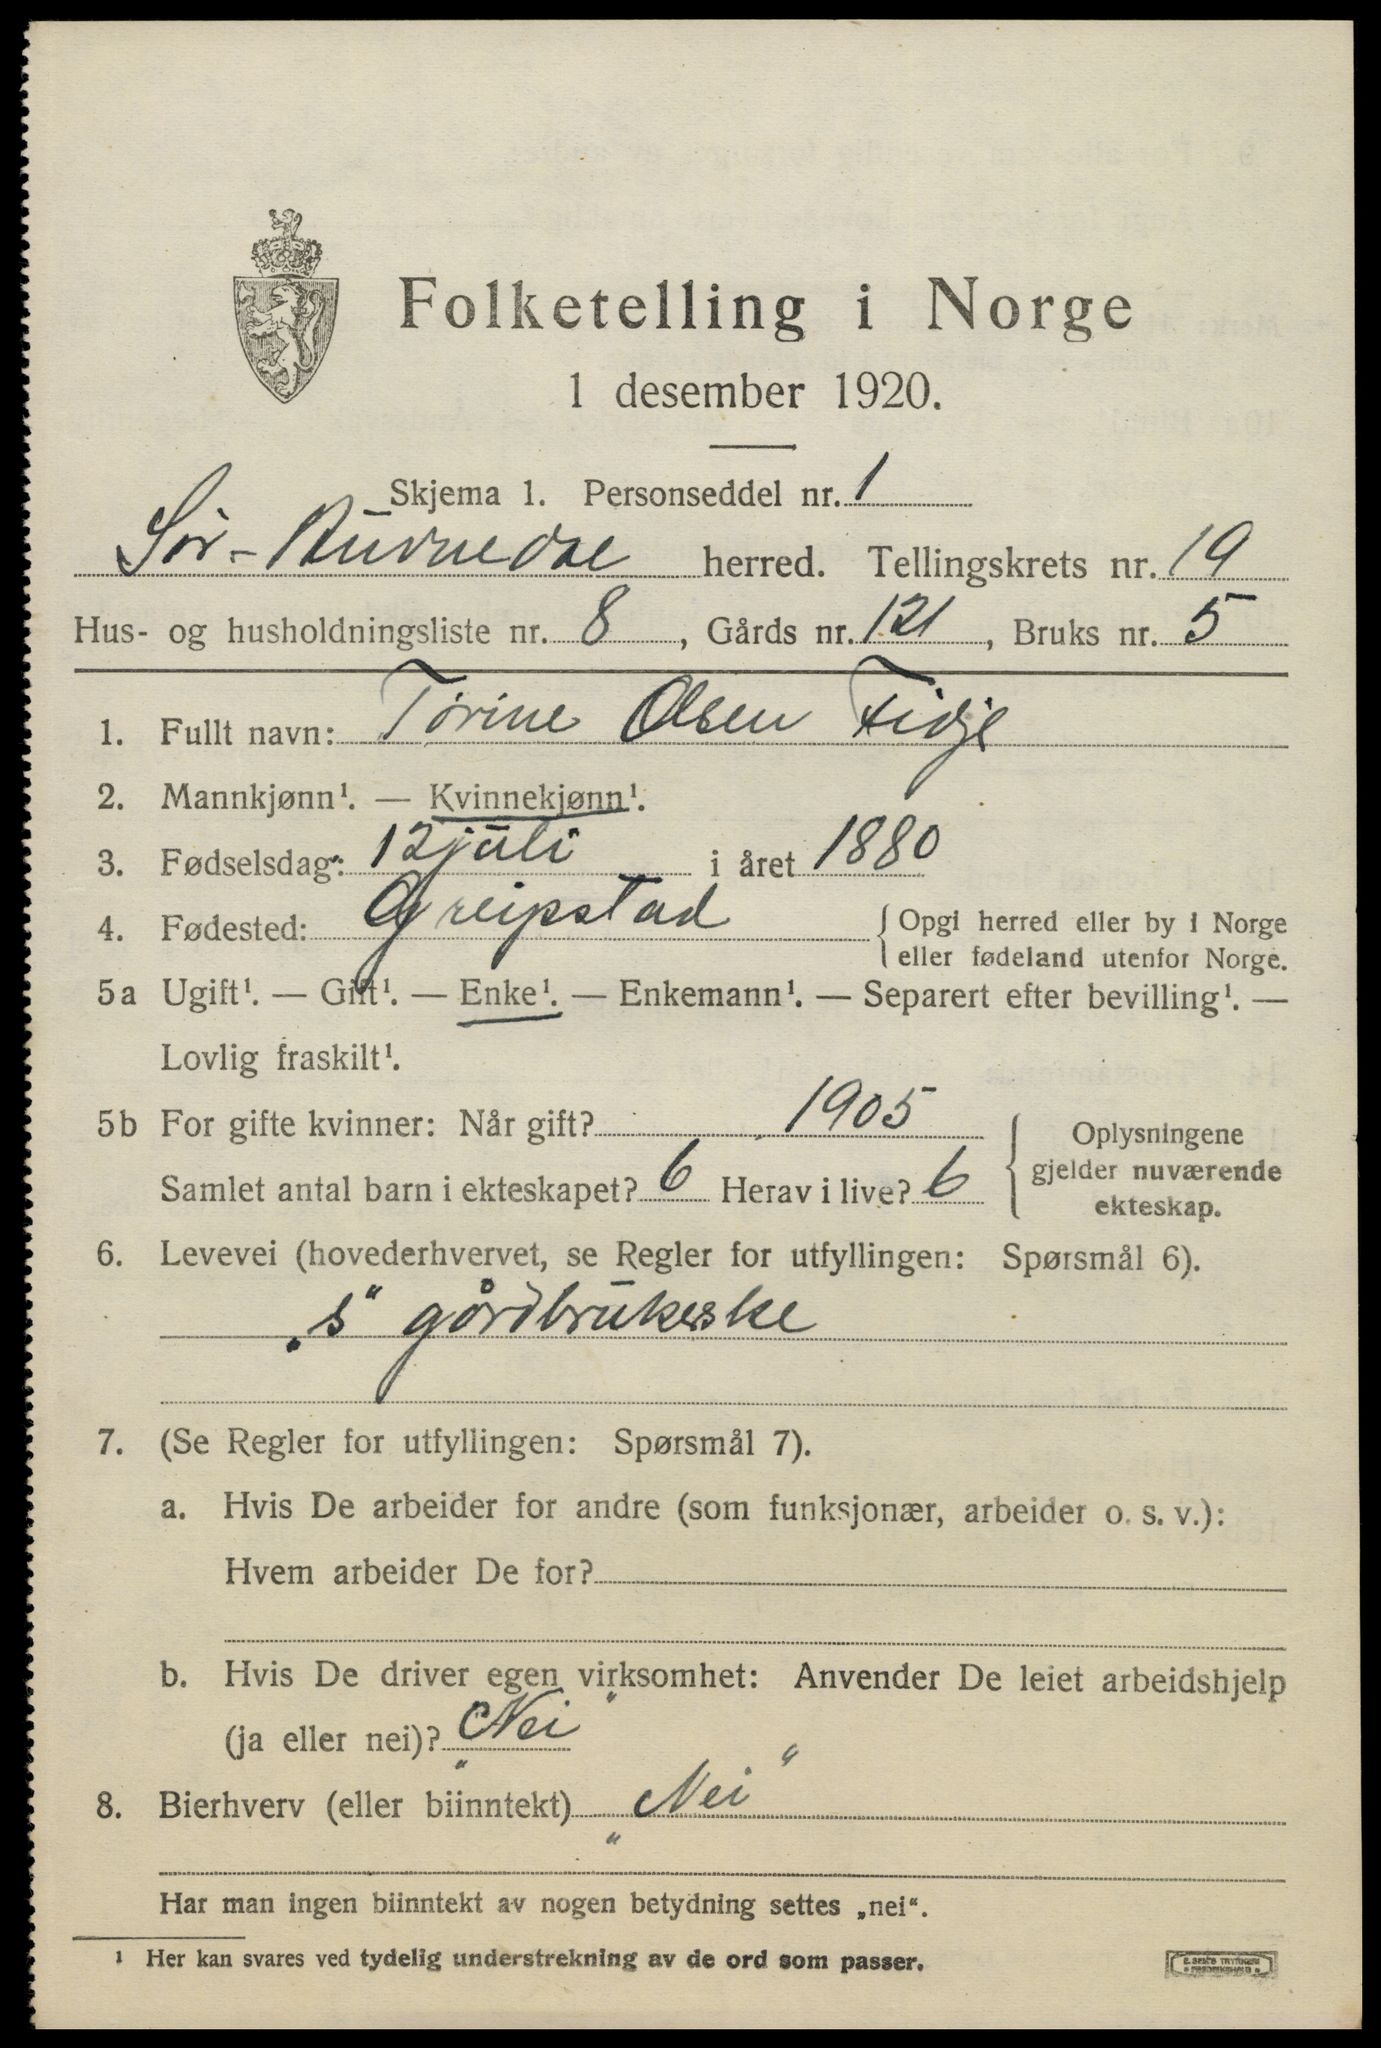 Folketelling i Norge
1 desember 1920.
Skjema 1. Personseddel nr. 1
Sør-Audnedal herred. Tellingskrets nr. 19
Hus- og husholdningsliste nr. 8, Gårds nr. 121, Bruks nr. 5
1. Fullt navn: Tørine Olsen Fidje
2. Mannkjønn¹. — Kvinnekjønn¹.
3. Fødselsdag: 12 juli i året 1880
4. Fødested: Greipstad {Opgi herred eller by i Norge
eller fødeland utenfor Norge.
5a Ugift¹. — Gift¹. — Enke¹. — Enkemann¹. — Separert efter bevilling¹. —
Lovlig fraskilt¹.
5b For gifte kvinner: Når gift? 1905
Samlet antal barn i ekteskapet? 6 Herav i live? 6
{Oplysningene
gjelder nuværende
ekteskap.
6. Levevei (hovederhvervet, se Regler for utfyllingen: Spørsmål 6).
„s“ gårdbrukerske
7. (Se Regler for utfyllingen: Spørsmål 7).
a. Hvis De arbeider for andre (som funksjonær, arbeider o. s. v.):
Hvem arbeider De for?
b. Hvis De driver egen virksomhet: Anvender De leiet arbeidshjelp
(ja eller nei)? „Nei“
8. Bierhverv (eller biinntekt) „Nei“
Har man ingen biinntekt av nogen betydning settes „nei“.
¹ Her kan svares ved tydelig understrekning av de ord som passer.